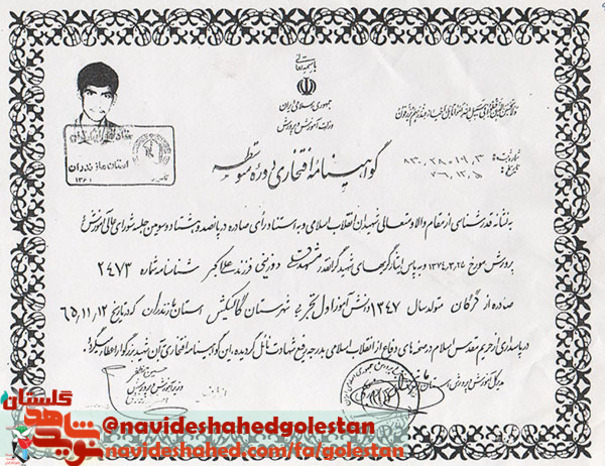 باسمه تعالی
جمهوری اسلامی ایران
وزارت آموزش و پرورش
گواهینامه افتخاری دوره متوسطه
استان مازندران
۱۳۶۱
به نشانه قدرشناسی از مقام والا و متعالی شهیدان انقلاب اسلامی و به استناد رأی صادره در پانصد و هشتاد و سومین جلسه شورای عالی آموزش و
پرورش مورخ ۱۳۷۴/۳/۲۵ و به پاس ایثارگریهای شهید گرانقدر فرزند علی اکبر شناسنامه شماره ۲۴۷۳
صادره از گرگان متولد سال ۱۳۴۷ دانش آموز اول تجربی شهرستان گالیکش استان مازندران که در تاریخ ۶۵,۱۱,۱۲
در پاسداری از حریم مقدس اسلام در صحنه های دفاع از انقلاب اسلامی به درجه رفیع شهادت نائل گردیده، این گواهینامه افتخاری آن شهید بزرگوار اعطاء میگردد
مدیر کل آموزش و پرورش استان مازندران
وزیر آموزش و پرورش
نوید شاهد گلستان
@navideshahedgolestan
navideshahed.com/fa/golestan